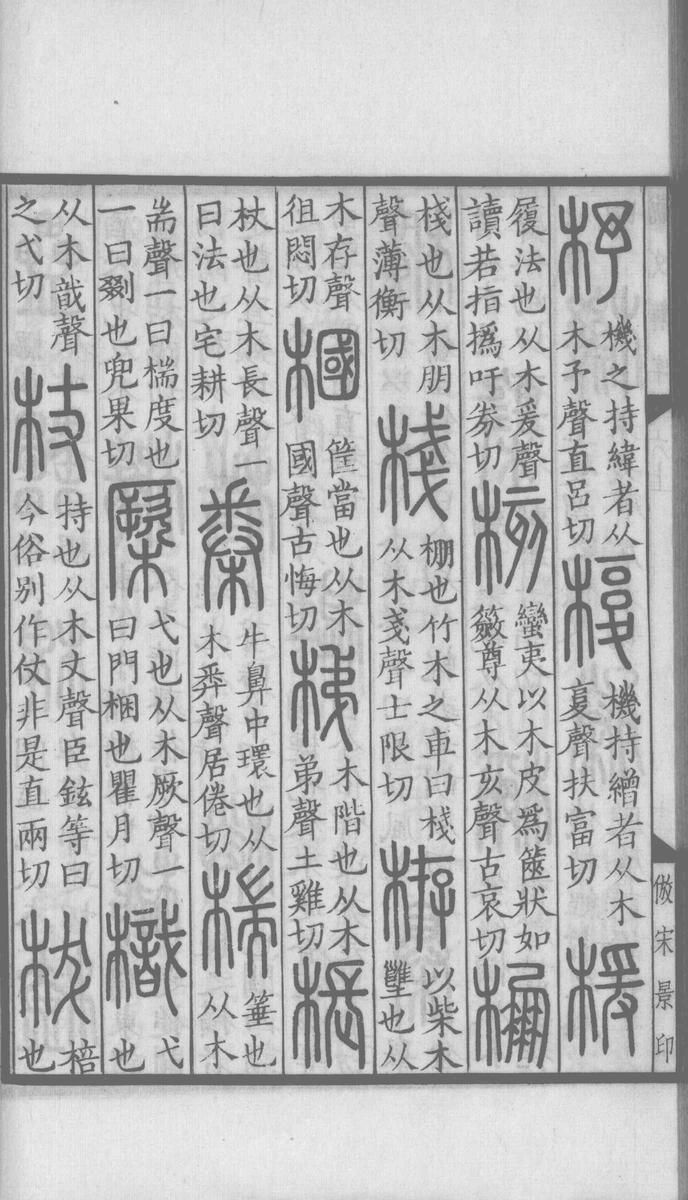 杼機之持緯者从木予聲直呂切椱機持繒者从木夐聲扶富切楥
履法也从木爰聲讀若指撝吁券切核蠻夷以木皮爲篋狀如籢尊从木亥聲古哀切棚
棧也从木朋聲薄衡切棧棚也竹木之車曰棧从木戔聲士限切栫以柴木壅也从
木存聲徂悶切槶筐當也从木國聲古悔切梯木階也从木弟聲土雞切棖
杖也从木長聲一曰法也宅耕切桊牛鼻中環也从木𢍏聲居倦切椯箠也从木
耑聲一曰椯度也一曰剟也兜果切橜弋也从木厥聲一曰門梱也瞿月切樴弋也
从木戠聲之弋切杖持也从木丈聲臣鉉等曰今俗别作仗非是直兩切柭棓也
倣宋景印